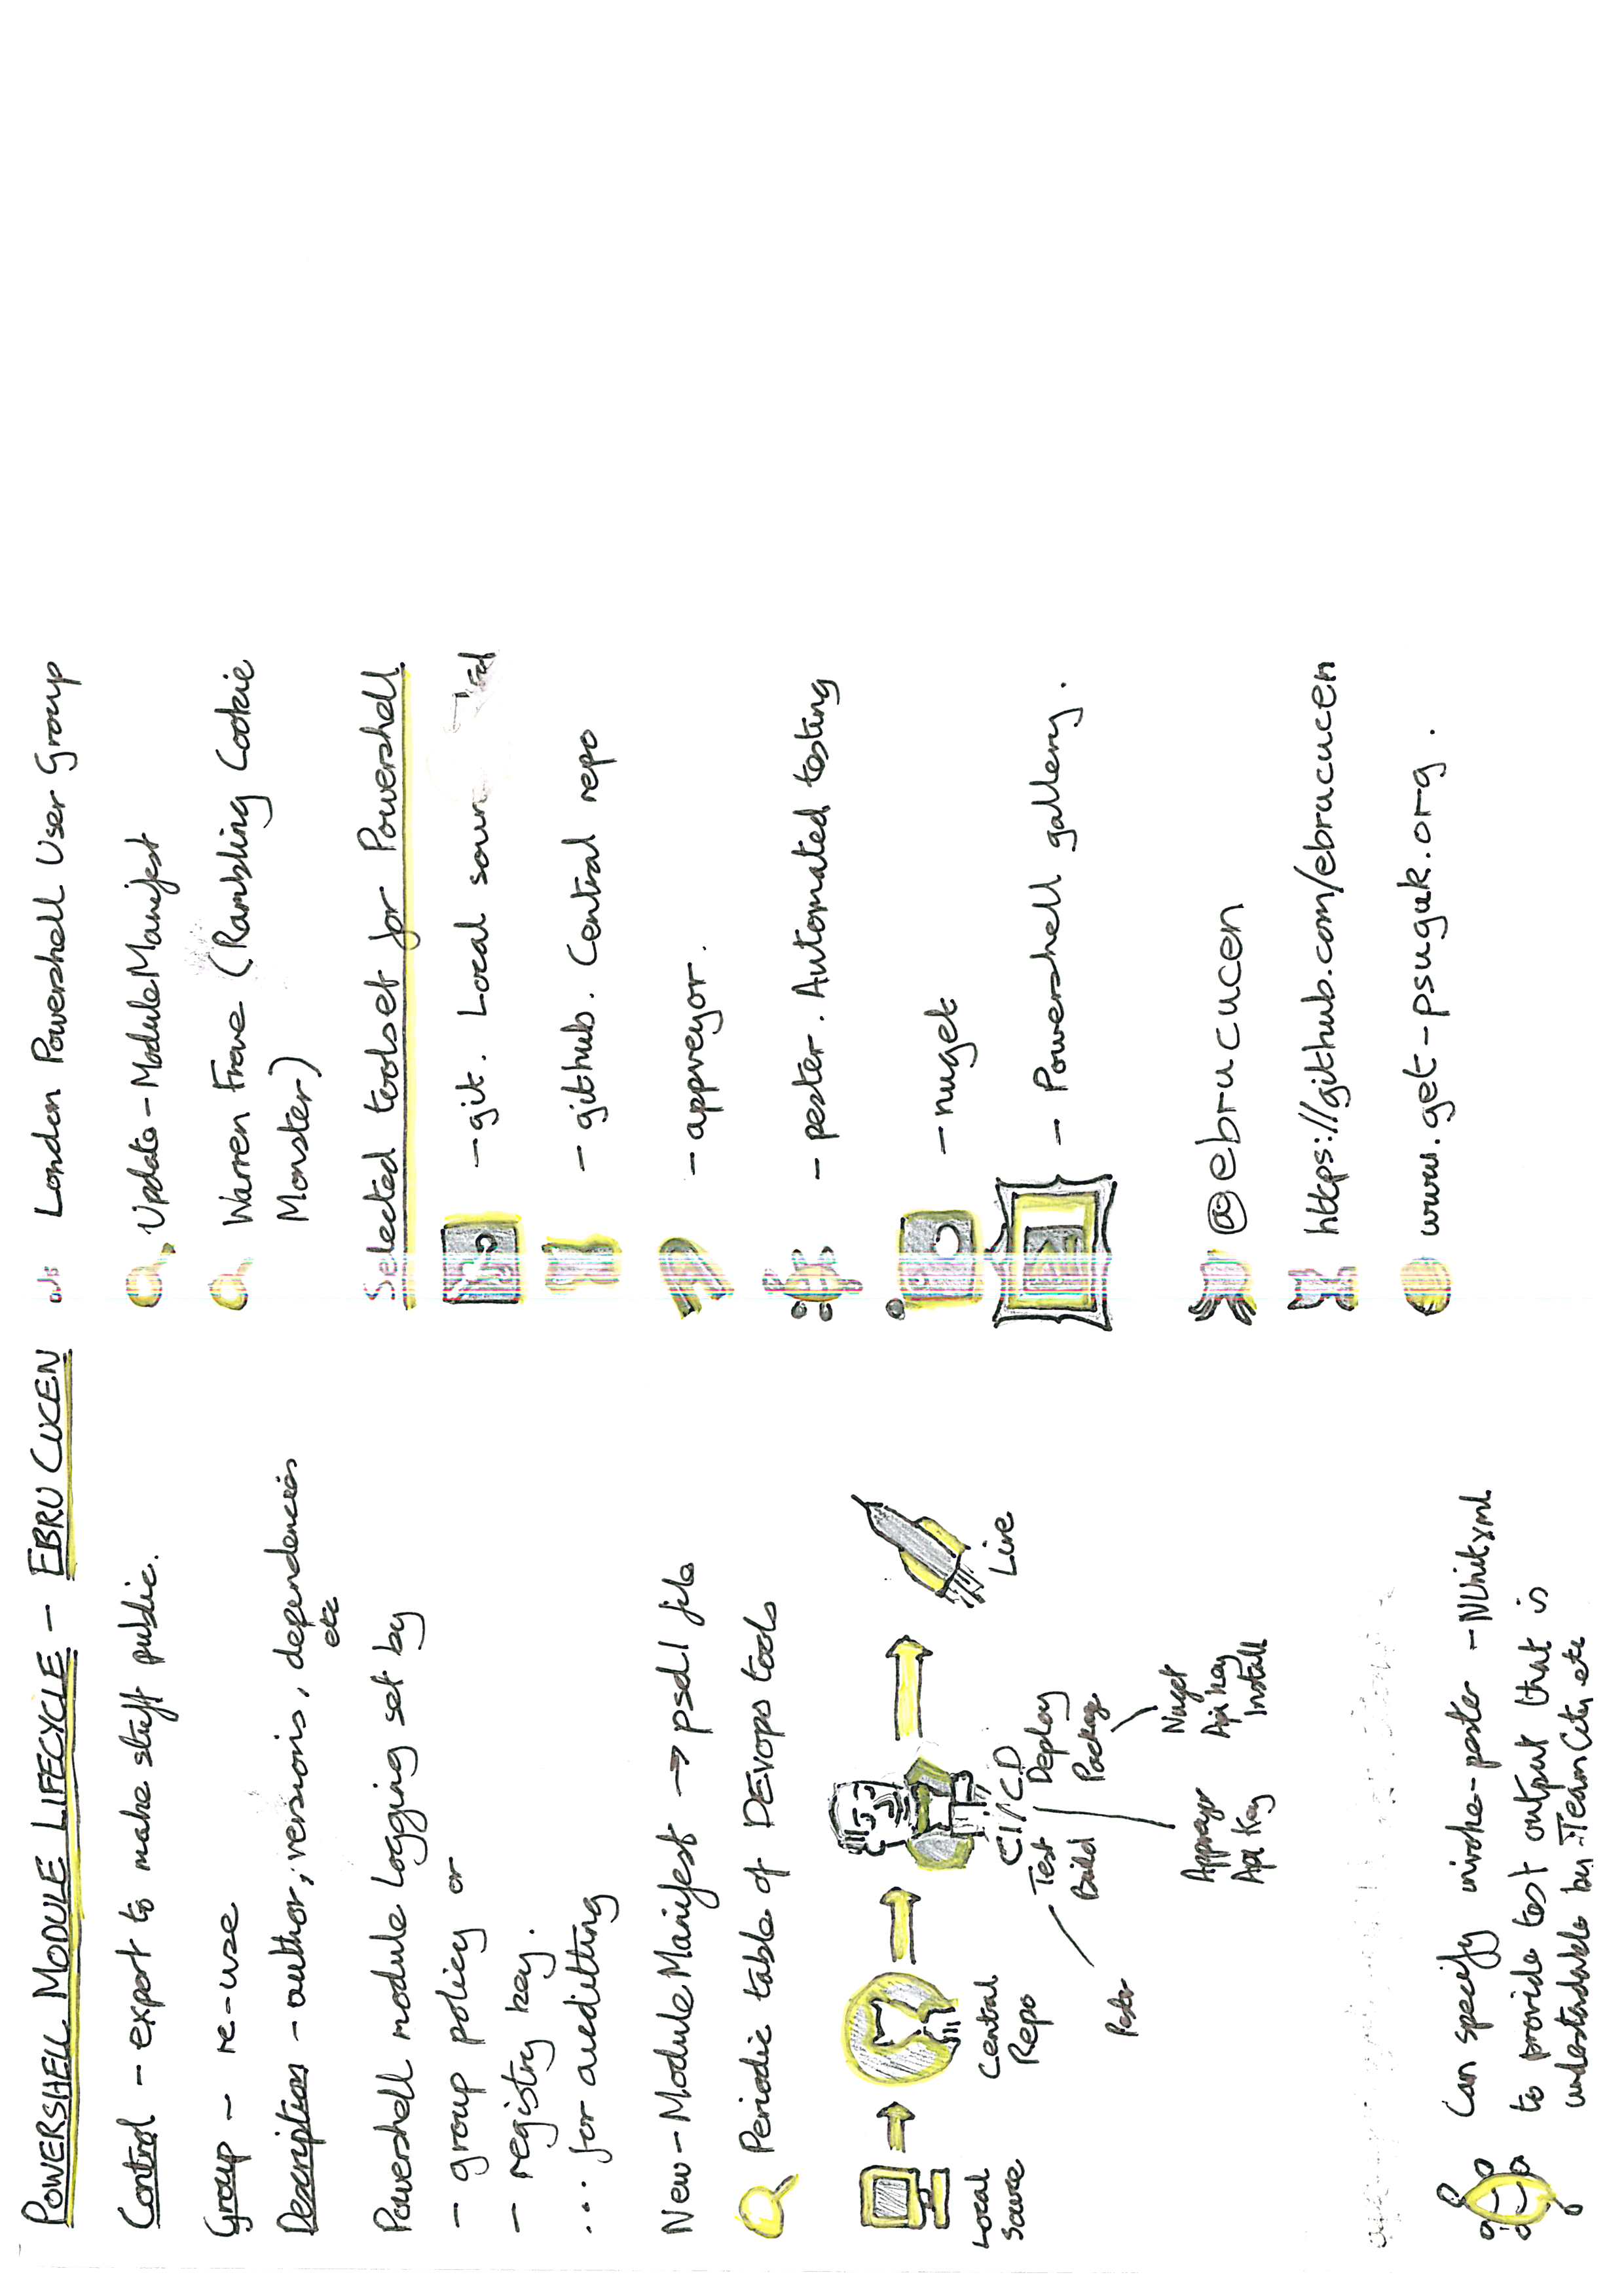 POWERSHELL MODULE LIFECYCLE - EBRU CUCEN
Control - export to make stuff public.
Group - re-use
Description - author, versions, dependencies
etc
Powershell module logging set by
- group policy or
- registry key.
... for auditting
New-ModuleManifest → psd1 file
Periodic table of DEvops tools
Local
Source
Central
Repo
CI/CD
Test
Build
Deploy
Package
Live
Pester
Appveyor
Api Key
Nuget
Api key
Install
Can specify invoke-pester -NUnitxml
to provide test output that is
understandable by TeamCity etc
London Powershell User Group
Update-ModuleManifest
Warren Frame (Rambling Cookie
Monster)
Selected toolset for Powershell
- git. Local
- github. Central repo
- appveyor.
- pester. Automated testing
- nuget
- Powershell gallery.
@ebrucucen
https://github.com/ebrucucen
www.get-psuguk.org.